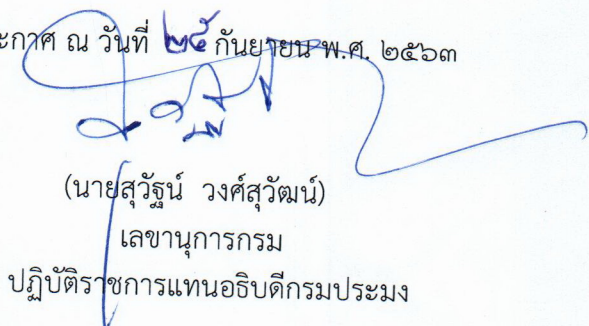 ะกาศ ณ วันที่ ๒๕ กันยายน พ.ศ. ๒๕๖๓
(นายสุวัฐน์ วงศ์สุวัฒน์)
เลขานุการกรม
ปฏิบัติราชการแทนอธิบดีกรมประมง